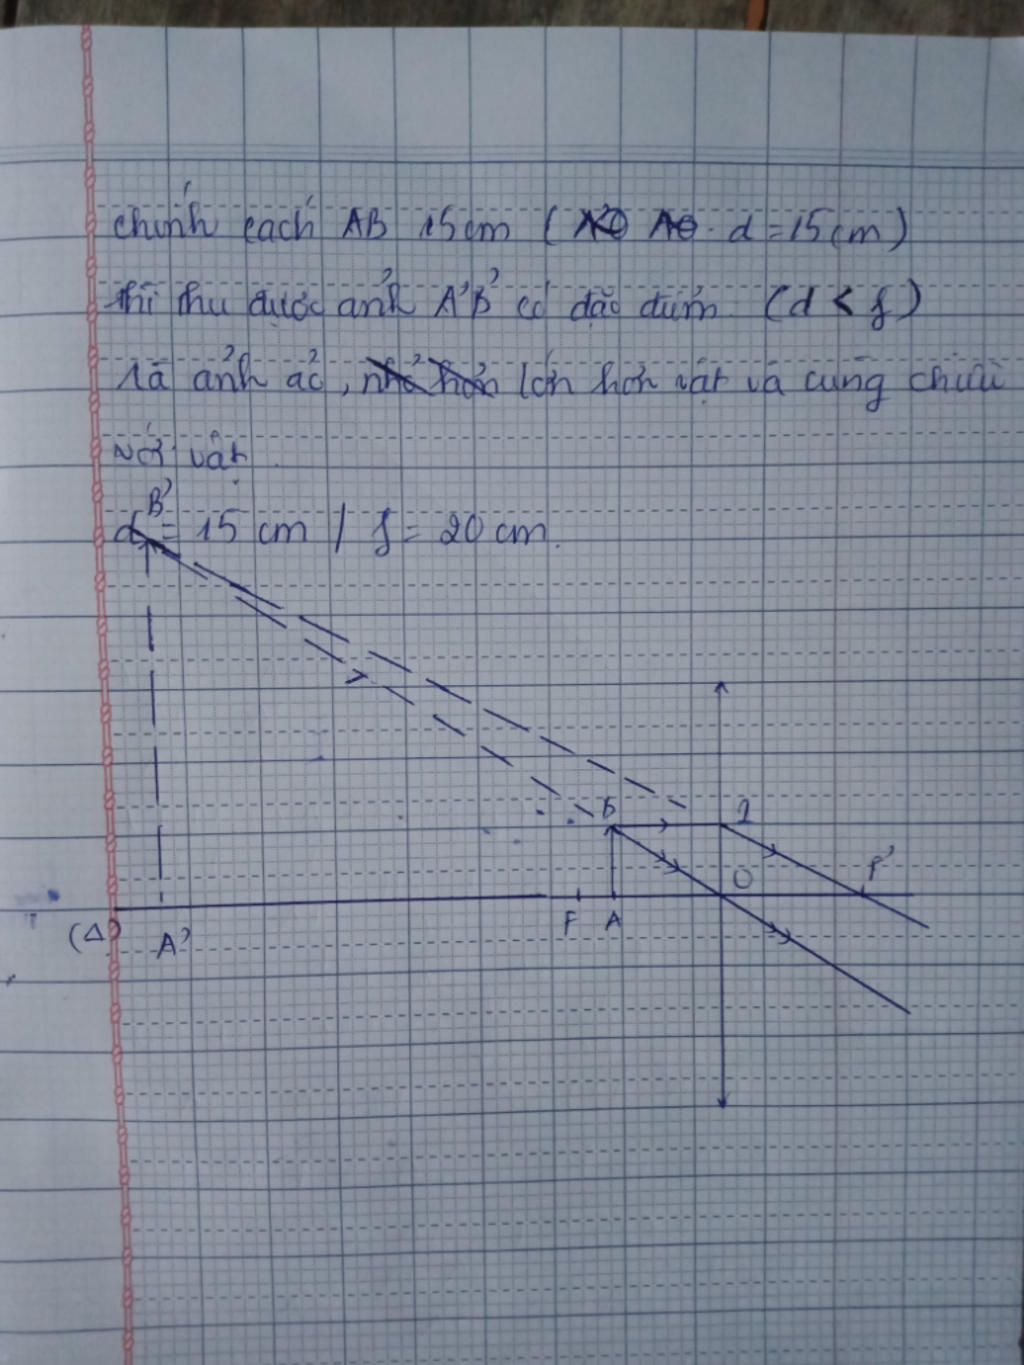 chỉnh cách AB 15cm ( d = 15cm)
thì thu được ảnh A'B' có đặc điểm (d < f)
là ảnh ảo, nhỏ hơn lớn hơn vật và cùng chiều
với vật.
B'
d = 15 cm / f = 20 cm.
B I
O F'
(Δ) A' F A